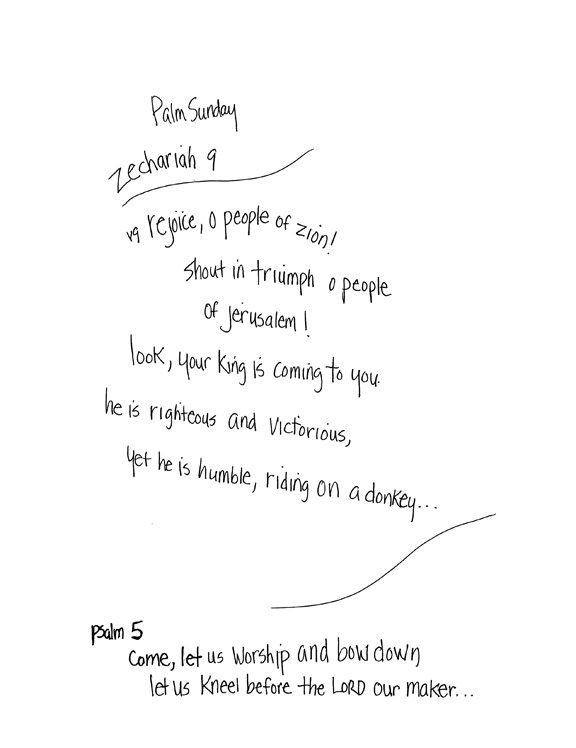 Palm Sunday
Zechariah 9
v9 rejoice, o people of zion!
shout in triumph o people
of jerusalem!
look, your King is coming to you.
he is righteous and victorious,
yet he is humble, riding on a donkey...
psalm 5
come, let us worship and bow down
let us kneel before the LORD our maker...